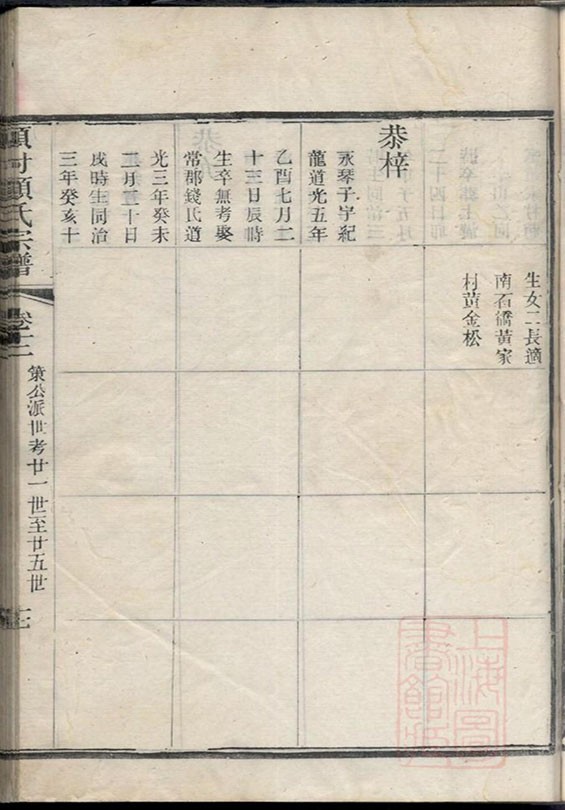 生女二長適
南石橋黄家
村黄金松
恭梓
永琴子字紀
龍道光五年
乙酉七月二
十三日辰時
生卒無考娶
常郡錢氏道
光三年癸未
二月二十日
戌時生同治
三年癸亥十
顧氏宗譜
卷十二
策公派世考廿一世至廿五世
上海圖
書館藏